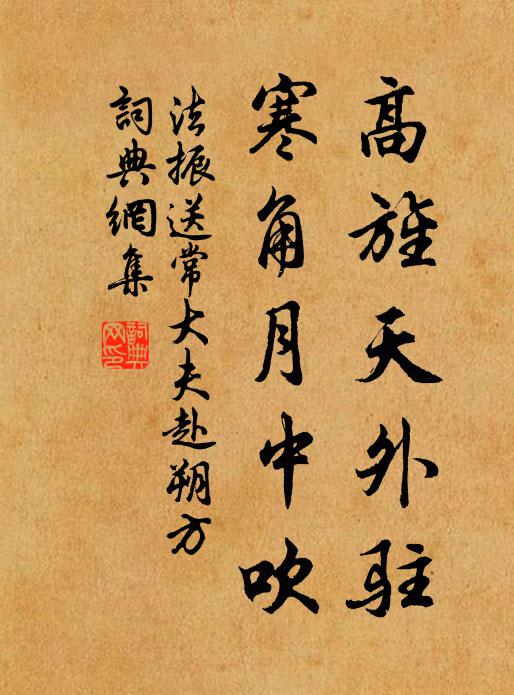 高旌天外駐
寒角月中吹
法振送常大夫赴朔方
詞典網集
詞典网印